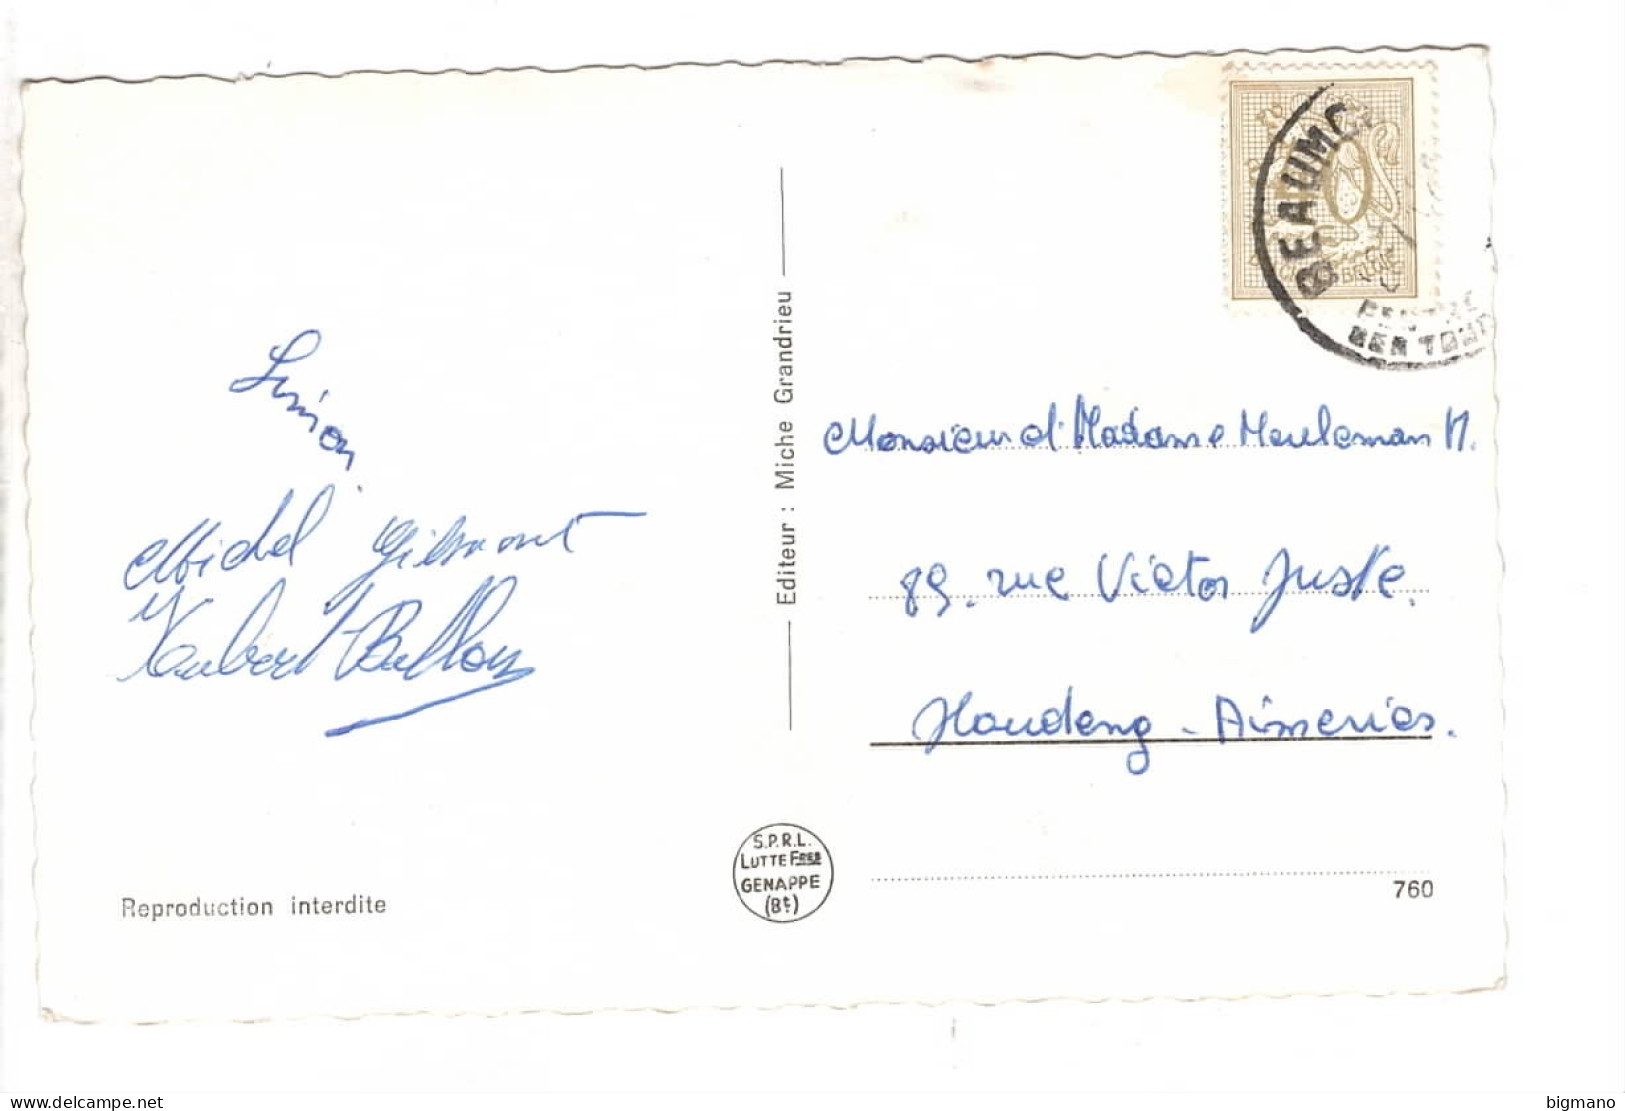 Simon
Michel Gilmont
Hubert Ballon
Editeur : Miche Grandrieu
BEAUMO
50
BELGIE
CENTRE
BEN TOUR
Monsieur et Madame Meuleman M.
89. rue Victor Juste.
Houdeng - Aimeries.
S.P.R.L.
LUTTE FRER
GENAPPE
(Bt)
Reproduction interdite
760
delcampe.net
bigmano